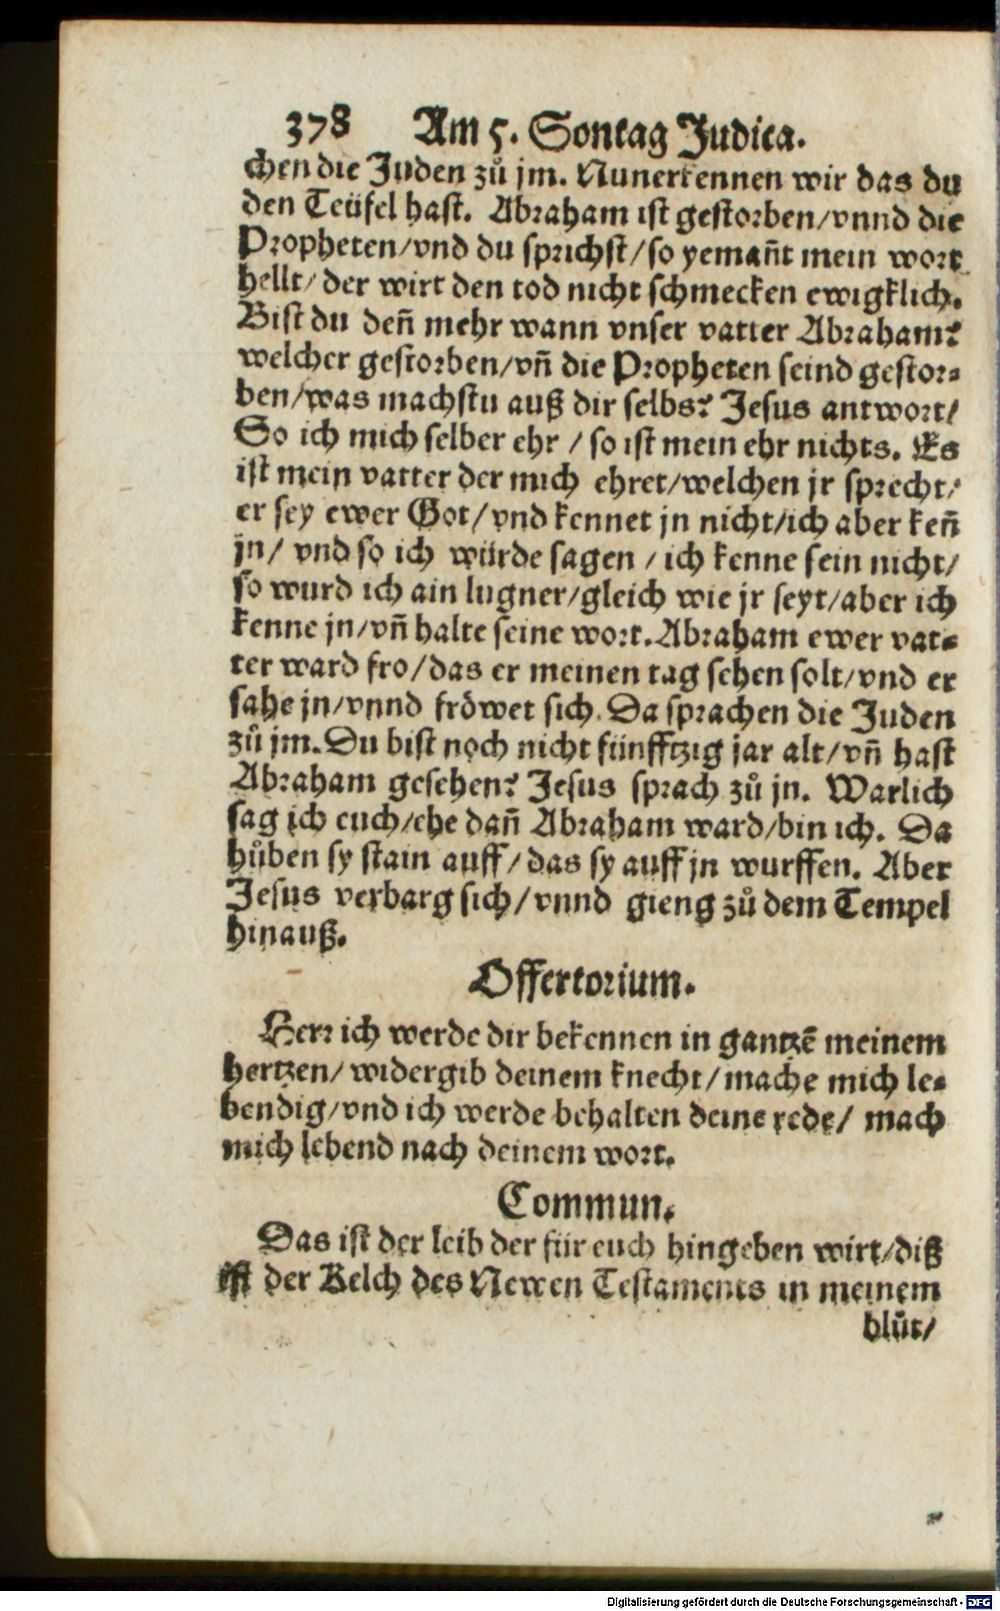 378 Am 5. Sontag Judica.
chen die Juden zů jm. Nunerkennen wir das du
den Teüfel hast. Abraham ist gestorben/vnnd die
Propheten/vnd du sprichst/so yemañt mein wort
hellt/der wirt den tod nicht schmecken ewigklich.
Bist du deñ mehr wann vnser vatter Abraham?
welcher gestorben/vñ die Propheten seind gestor⸗
ben/was machstu auß dir selbs? Jesus antwort/
So ich mich selber ehr/so ist mein ehr nichts. Es
ist mein vatter der mich ehret/welchen jr sprecht/
er sey ewer Got/vnd kennet jn nicht/ich aber keñ
jn/ vnd so ich würde sagen/ich kenne sein nicht/
so wurd ich ain lugner/gleich wie jr seyt/aber ich
kenne jn/vñ halte seine wort. Abraham ewer vat⸗
ter ward fro/das er meinen tag sehen solt/vnd er
sahe jn/vnnd fröwet sich. Da sprachen die Juden
zů jm. Du bist noch nicht fünfftzig jar alt/vñ hast
Abraham gesehen? Jesus sprach zů jn. Warlich
sag ich euch/ehe dañ Abraham ward/bin ich. Da
hůben sy stain auff/das sy auff jn wurffen. Aber
Jesus verbarg sich/vnnd gieng zů dem Tempel
hinauß.
Offertorium.
Herr ich werde dir bekennen in gantzē meinem
hertzen/widergib deinem knecht/mache mich le⸗
bendig/vnd ich werde behalten deine rede/ mach
mich lebend nach deinem wort.
Commun.
Das ist der leib der für euch hingeben wirt/diß
ist der Kelch des Newen Testaments in meinem
blůt/
Digitalisierung gefördert durch die Deutsche Forschungsgemeinschaft - DFG